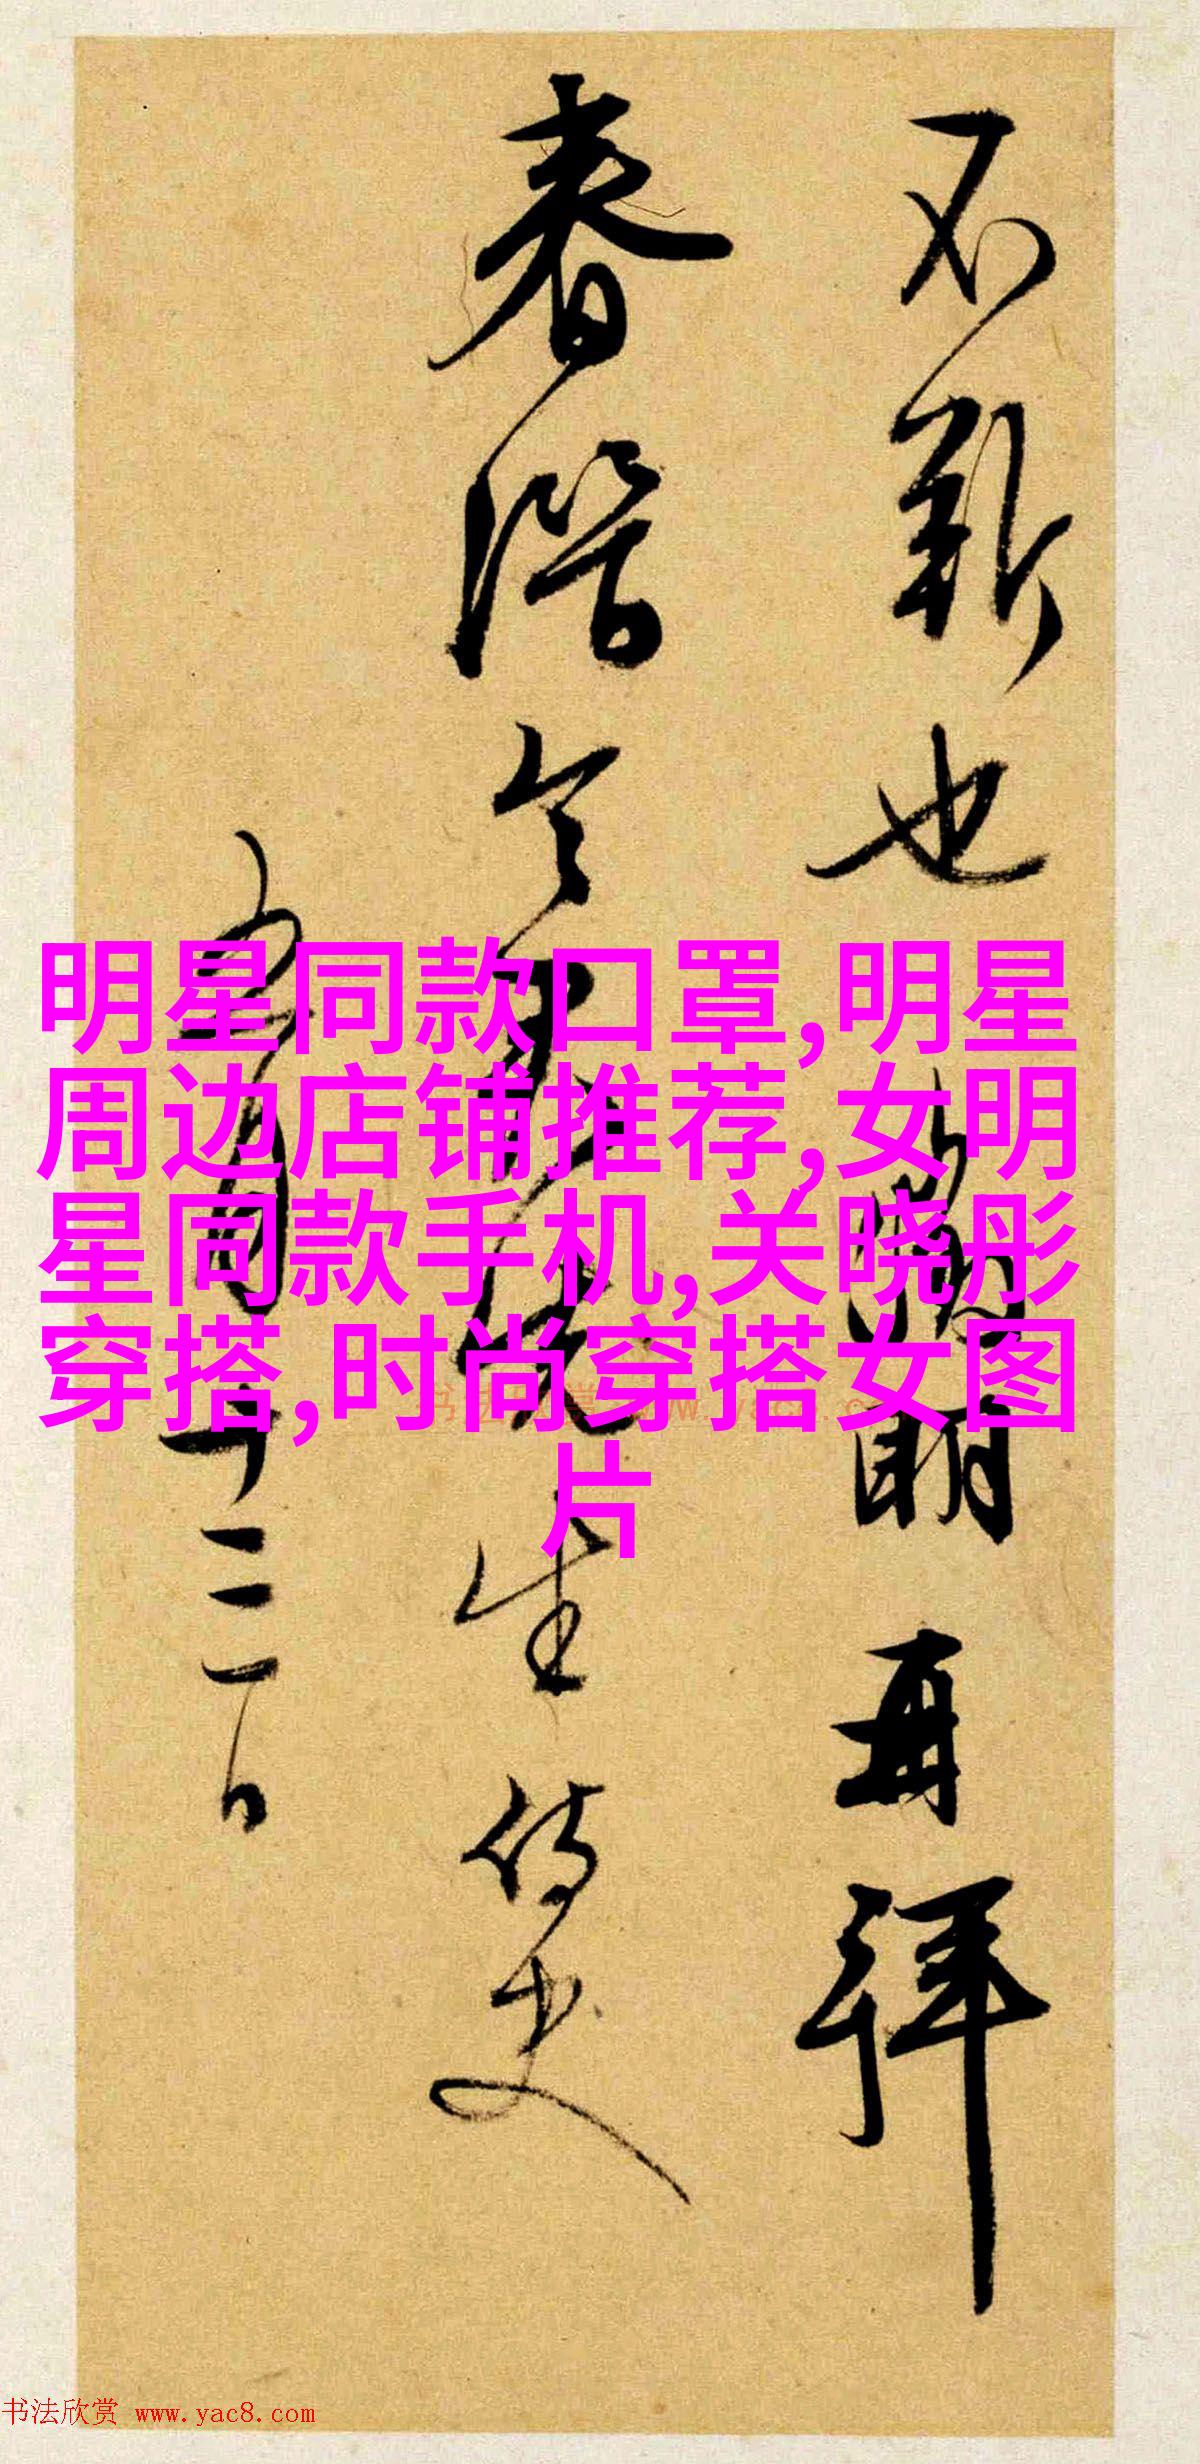 不斩也
再拜
春潛令
生侍史
五月十三日
明星同款口罩,明星
周边店铺推荐,女明
星同款手机,关晓彤
穿搭,时尚穿搭女图
片
书法欣赏 www.yac8.com